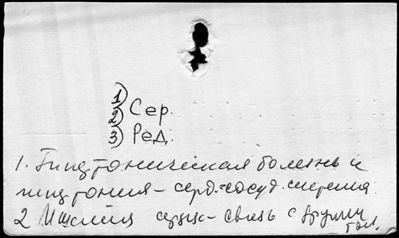 1)
2) Сер.
3) Ред.
1. Гипертоническая болезнь и
гипертония – серд.-сосуд. система
2 Ишемия сердца – связь с другими